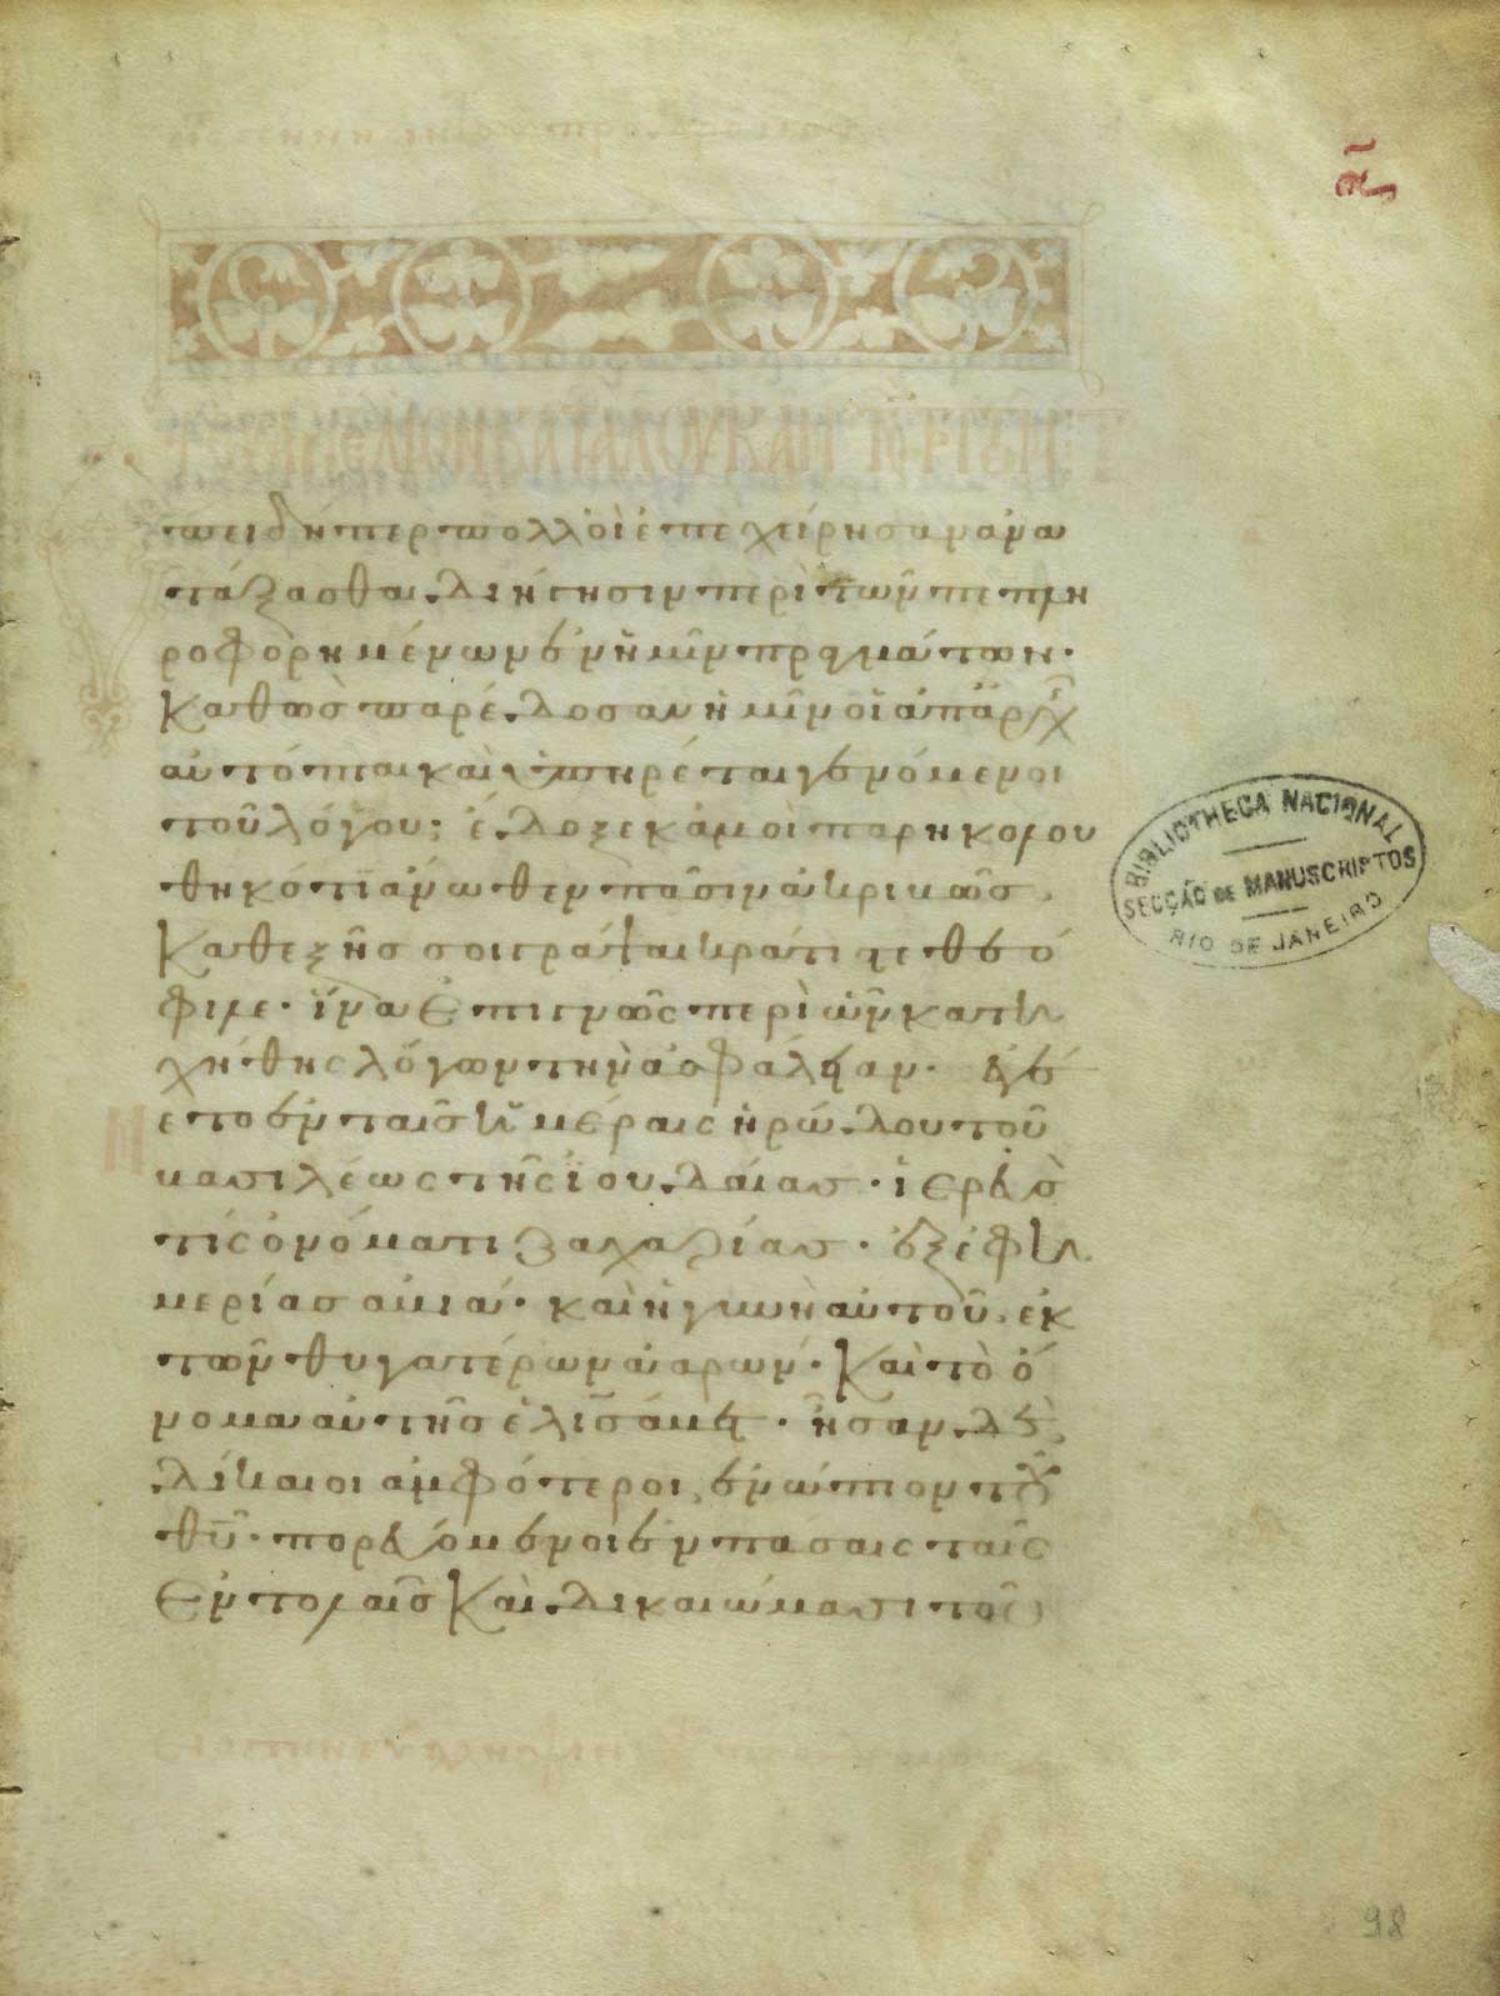 ΕΥΑΓΓΕΛΙΟΝ ΚΑΤΑ ΛΟΥΚΑΝ
πειδήπερ πολλοὶ ἐπεχείρησαν ἀνα
τάξασθαι διήγησιν περὶ τῶν πεπλη
ροφορημένων ἐν ἡμῖν πραγμάτων·
καθὼς παρέδοσαν ἡμῖν οἱ ἀπαρχ
αὐτόπται καὶ ὑπηρέται γενόμενοι
τοῦ λόγου; ἔδοξε κἀμοὶ παρηκολου
θηκότι ἄνωθεν πᾶσιν ἀκριβῶς,
καθεξῆς σοι γράψαι κράτιστε θεό
φιλε· ἵνα ἐπιγνῶς περὶ ὧν κατη
χήθης λόγων τὴν ἀσφάλειαν· ἐγέ
ετο ἐν ταῖς ἡμέραις ἡρώδου τοῦ
βασιλέως τῆς ἰουδαίας· ἱερεὺς
τίς ὀνόματι ζαχαρίας· ἐξ ἐφη
μερίας ἀβιά· καὶ ἡ γυνὴ αὐτοῦ, ἐκ
τῶν θυγατέρων ἀαρών· καὶ τὸ ὄ
νομα αὐτῆς ἐλισάβετ· ἦσαν δὲ
δίκαιοι ἀμφότεροι, ἐνώπιον τοῦ
θῦ· πορευόμενοι ἐν πάσαις ταῖς
ἐντολαῖς καὶ δικαιώμασι τοῦ
BIBLIOTHECA NACIONAL
SECÇÃO DE MANUSCRIPTOS
RIO DE JANEIRO
98